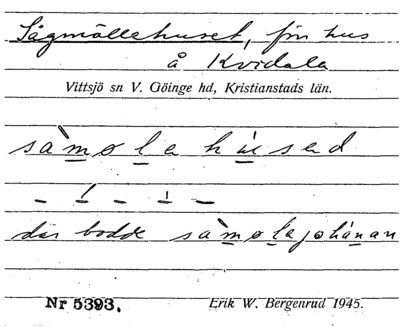 Sågmöllehuset, fin hus
å Kvidala
Vittsjö sn V. Göinge hd, Kristianstads län.
sàmøla húsad
där bodde sàmølajohánan
Nr 5393.
Erik W. Bergenrud 1945.